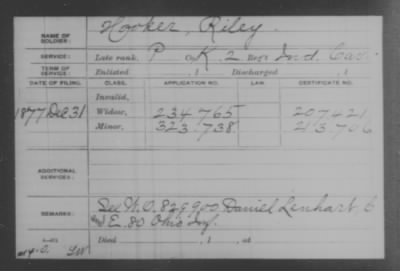 NAME OF SOLDIER: Hooker, Riley.
SERVICE: Late rank, P Co. K, 2 Reg't Ind. Cav.
TERM OF SERVICE: Enlisted , 1 Discharged , 1
DATE OF FILING. CLASS. APPLICATION NO. LAW. CERTIFICATE NO.
Invalid,
1877 Dec 31 Widow, 234.765 207421
Minor, 323.738 213,706
ADDITIONAL SERVICES:
REMARKS: See W.O. 829900 Daniel Lenhart, C
and E. 80 Ohio Inf.
Died , 1 , at